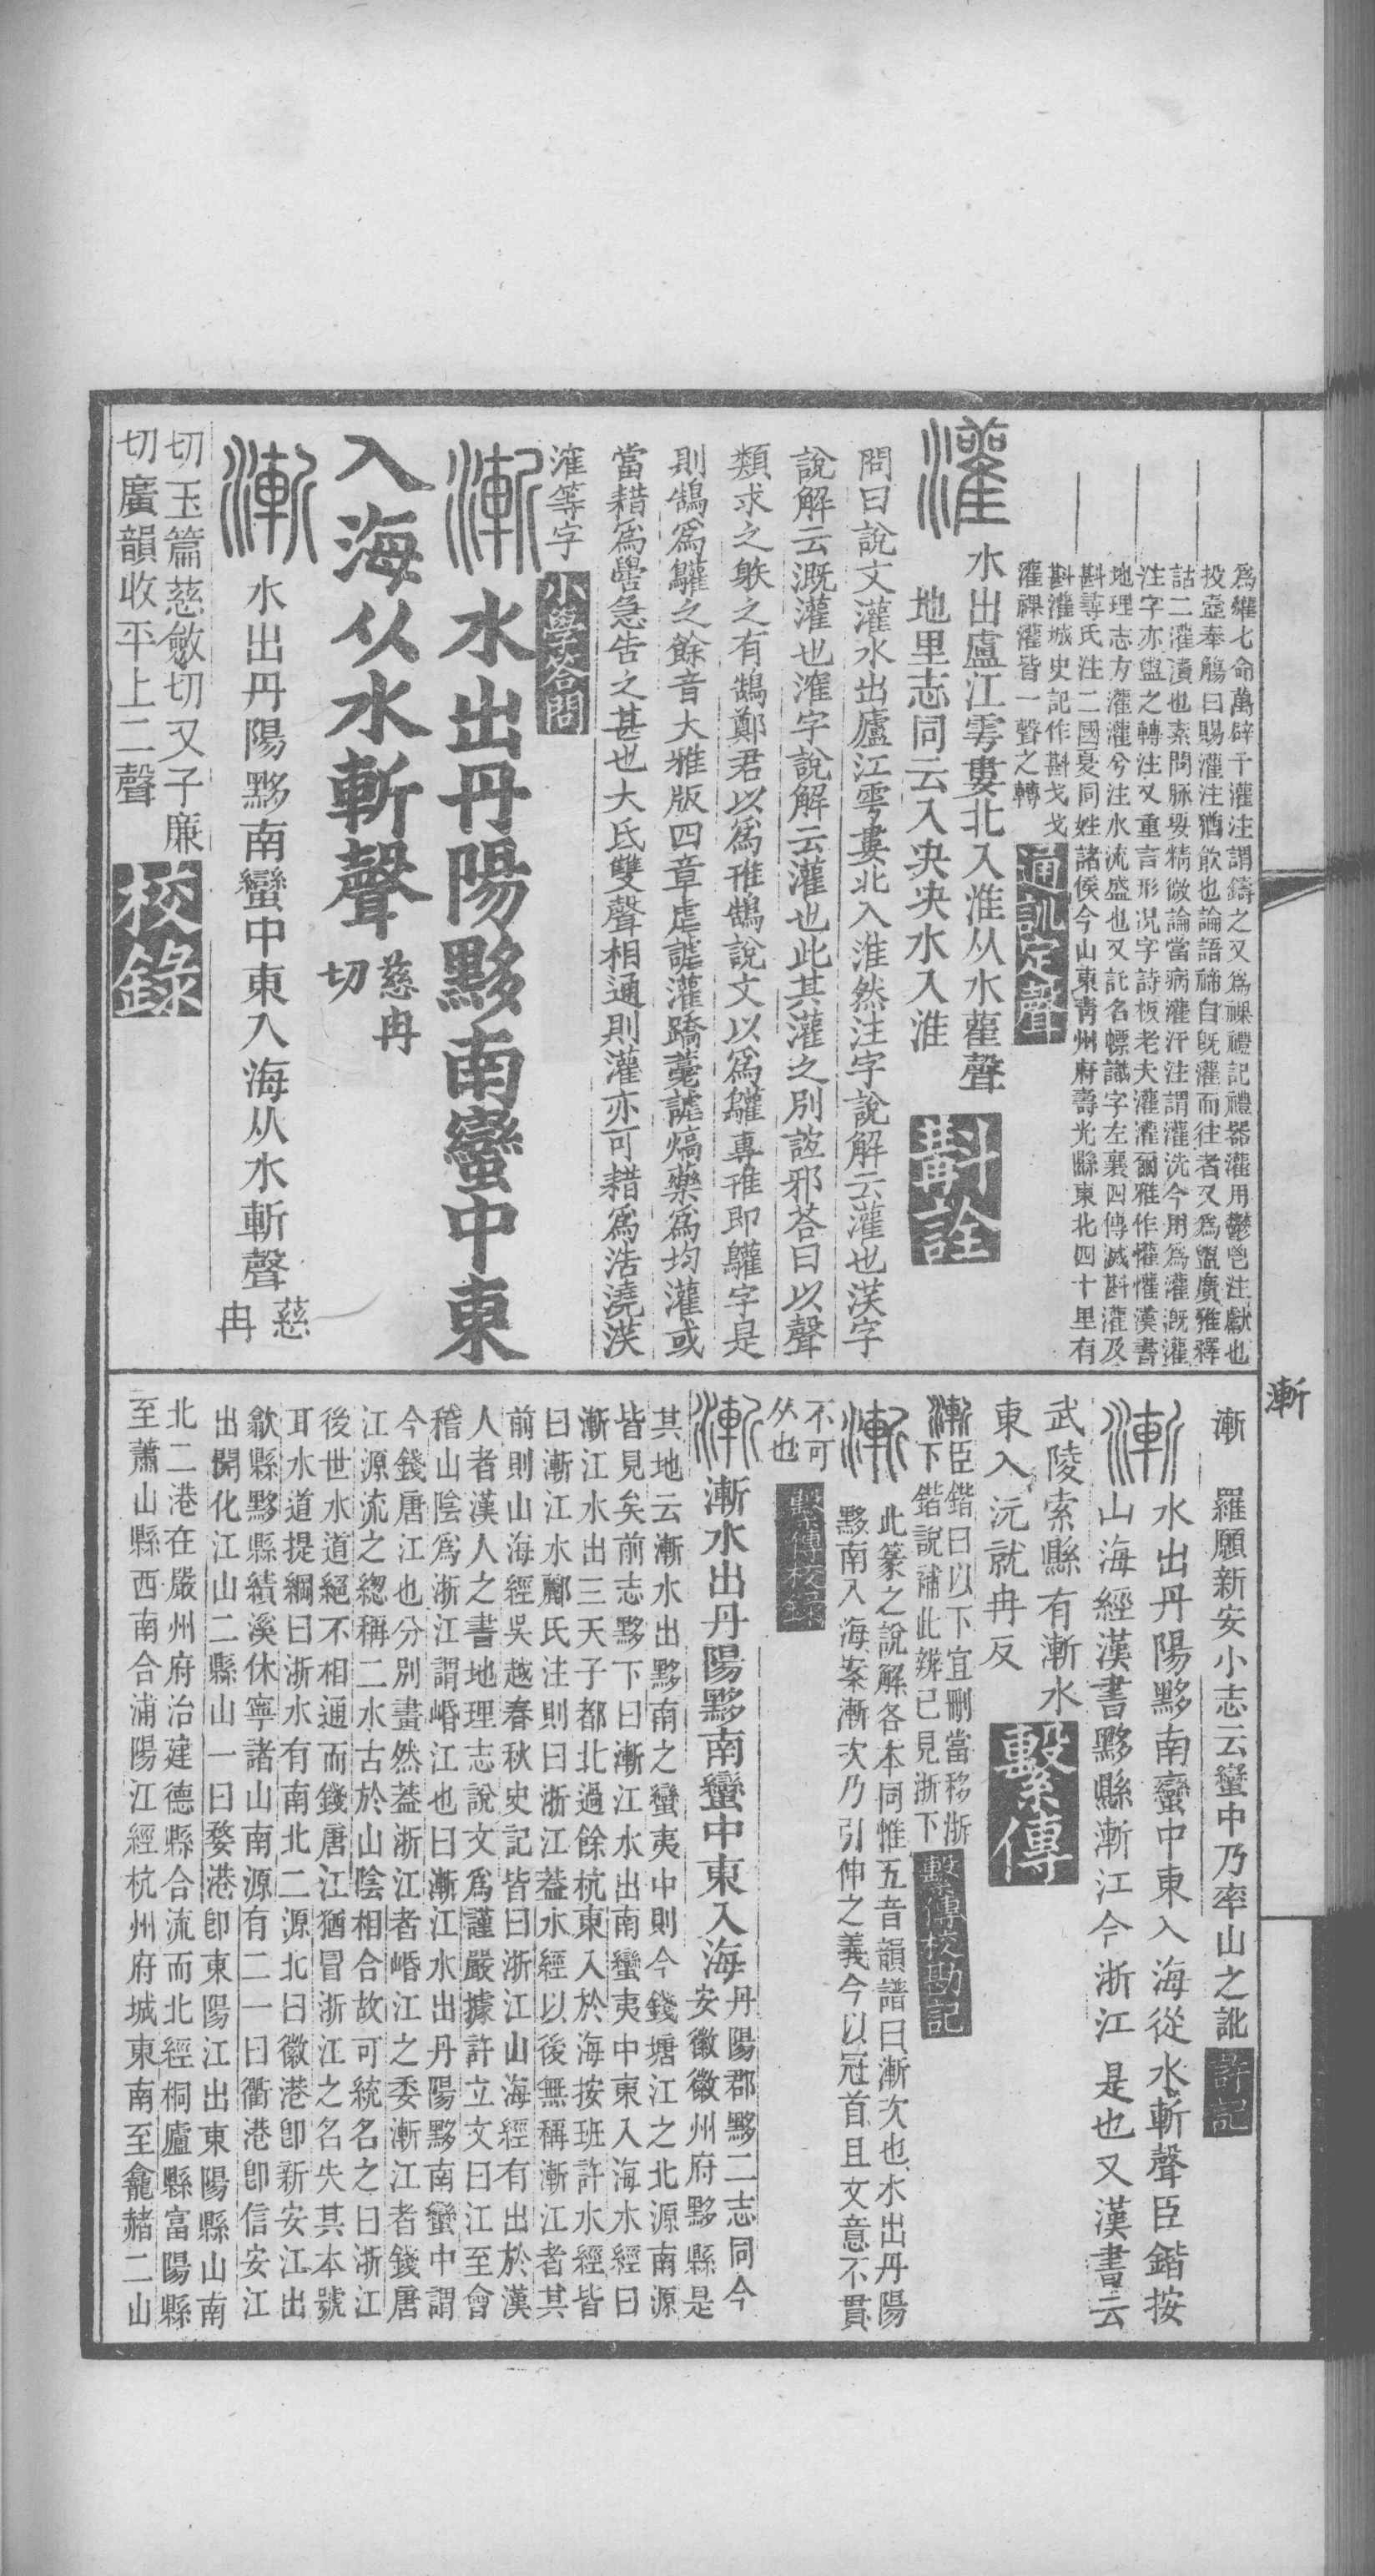 爲雗七命萬辟千灌注謂鑄之又爲祼禮記禮器灌用鬱鬯注獻也
投壺奉觴曰賜灌注猶飮也論語禘自旣灌而往者又爲盥廣雅釋
詁二灌漬也素問脉要精微論當病灌汗注謂灌洗今用爲灌漑灌
注字亦盥之轉注又重言形况字詩板老夫灌灌爾雅作懽懽漢書
地理志方灌灌兮注水流盛也又託名幖識字左襄四傳滅斟灌及
斟尋氏注二國夏同姓諸侯今山東靑州府壽光縣東北四十里有
斟灌城史記作斟戈戈
灌祼灌皆一聲之轉
通訓定聲
灌
水出廬江雩婁北入淮从水雚聲
地里志同云入夬夬水入淮
斠詮
問曰說文灌水出廬江雩婁北入淮然注字說解云灌也渼字
說解云漑灌也漼字說解云灌也此其灌之別誼邪荅曰以聲
類求之躲之有鵠鄭君以爲隺鵠說文以爲雗專隺即雗字是
則鵠爲雗之餘音大雅版四章虐謔灌蹻薧謔熇藥爲均灌或
當耤爲嚳急告之甚也大氐雙聲相通則灌亦可耤爲浩澆渼
漼等字
小學荅問
漸
水出丹陽黟南蠻中東
入海从水斬聲
慈冉
切
漸
水出丹陽黟南蠻中東入海从水斬聲
慈
冉
切玉篇慈斂切又子廉
切廣韻收平上二聲
校錄
漸
漸
羅願新安小志云蠻中乃率山之訛
許記
漸
水出丹陽黟南蠻中東入海從水斬聲臣鍇按
山海經漢書黟縣漸江今浙江是也又漢書云
武陵索縣有漸水
東入沅就冉反
繫傳
漸臣鍇曰以下宜刪當移浙
下鍇說補此辨已見浙下
繫傳校勘記
漸
此篆之說解各本同惟五音韻譜曰漸次也水出丹陽
黟南入海案漸次乃引伸之義今以冠首且文意不貫
不可
从也
繫傳校錄
漸
漸水出丹陽黟南蠻中東入海
丹陽郡黟二志同今
安徽徽州府黟縣是
其地云漸水出黟南之蠻夷中則今錢塘江之北源南源
皆見矣前志黟下曰漸江水出南蠻夷中東入海水經曰
漸江水出三天子都北過餘杭東入於海按班許水經皆
曰漸江水酈氏注則曰浙江葢水經以後無稱漸江者其
前則山海經吳越春秋史記皆曰浙江山海經有出於漢
人者漢人之書地理志說文爲謹嚴據許立文曰江至會
稽山陰爲浙江謂崏江也曰漸江水出丹陽黟南蠻中謂
今錢唐江也分別畫然葢浙江者崏江之委漸江者錢唐
江源流之緫稱二水古於山陰相合故可統名之曰浙江
後世水道絕不相通而錢唐江猶冒浙江之名失其本號
耳水道提綱曰浙水有南北二源北曰徽港卽新安江出
歙縣黟縣績溪休寧諸山南源有二一曰衢港卽信安江
出開化江山二縣山一曰婺港卽東陽江出東陽縣山南
北二港在嚴州府治建德縣合流而北經桐廬縣富陽縣
至蕭山縣西南合浦陽江經杭州府城東南至龕赭二山